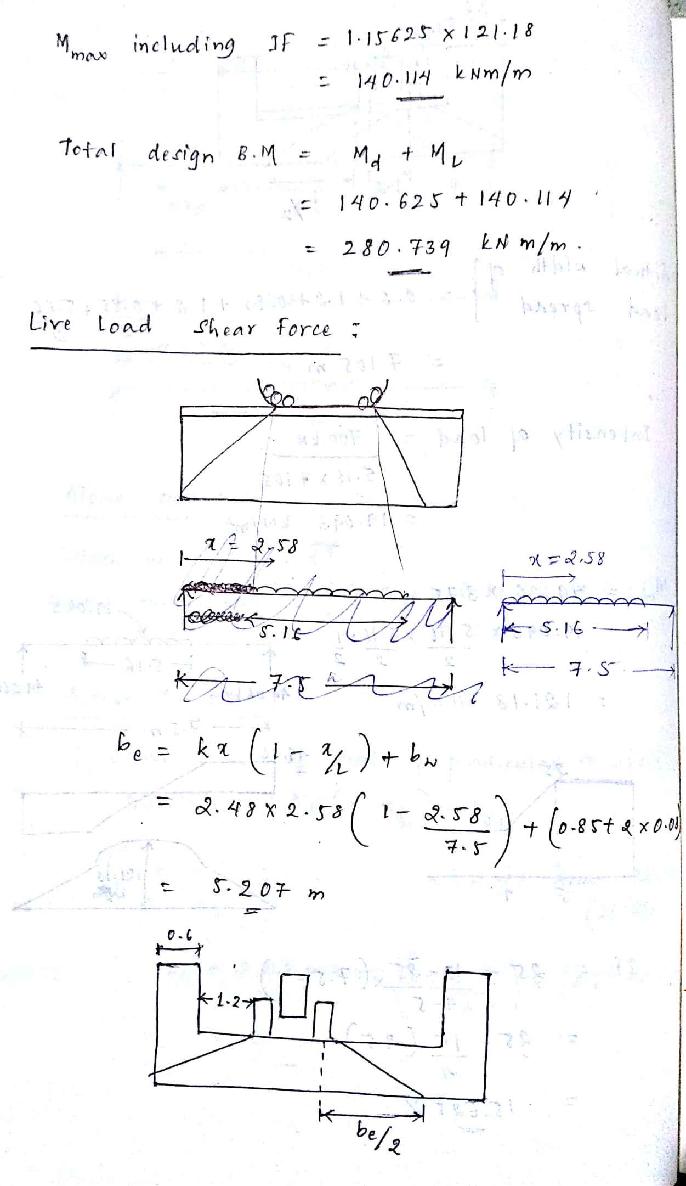 Mmax including IF = 1.15625 x 121.18
= 140.114 kNm/m
Total design B.M = Md + ML
= 140.625 + 140.114
= 280.739 kN m/m.
Live Load Shear Force :
x = 2.58
5.16
7.5
x = 2.58
5.16
7.5
be = kx (1 - x/L) + bw
= 2.48 x 2.58 (1 - 2.58/7.5) + (0.85 + 2 x 0.08)
= 5.207 m
0.6
1.2
be/2